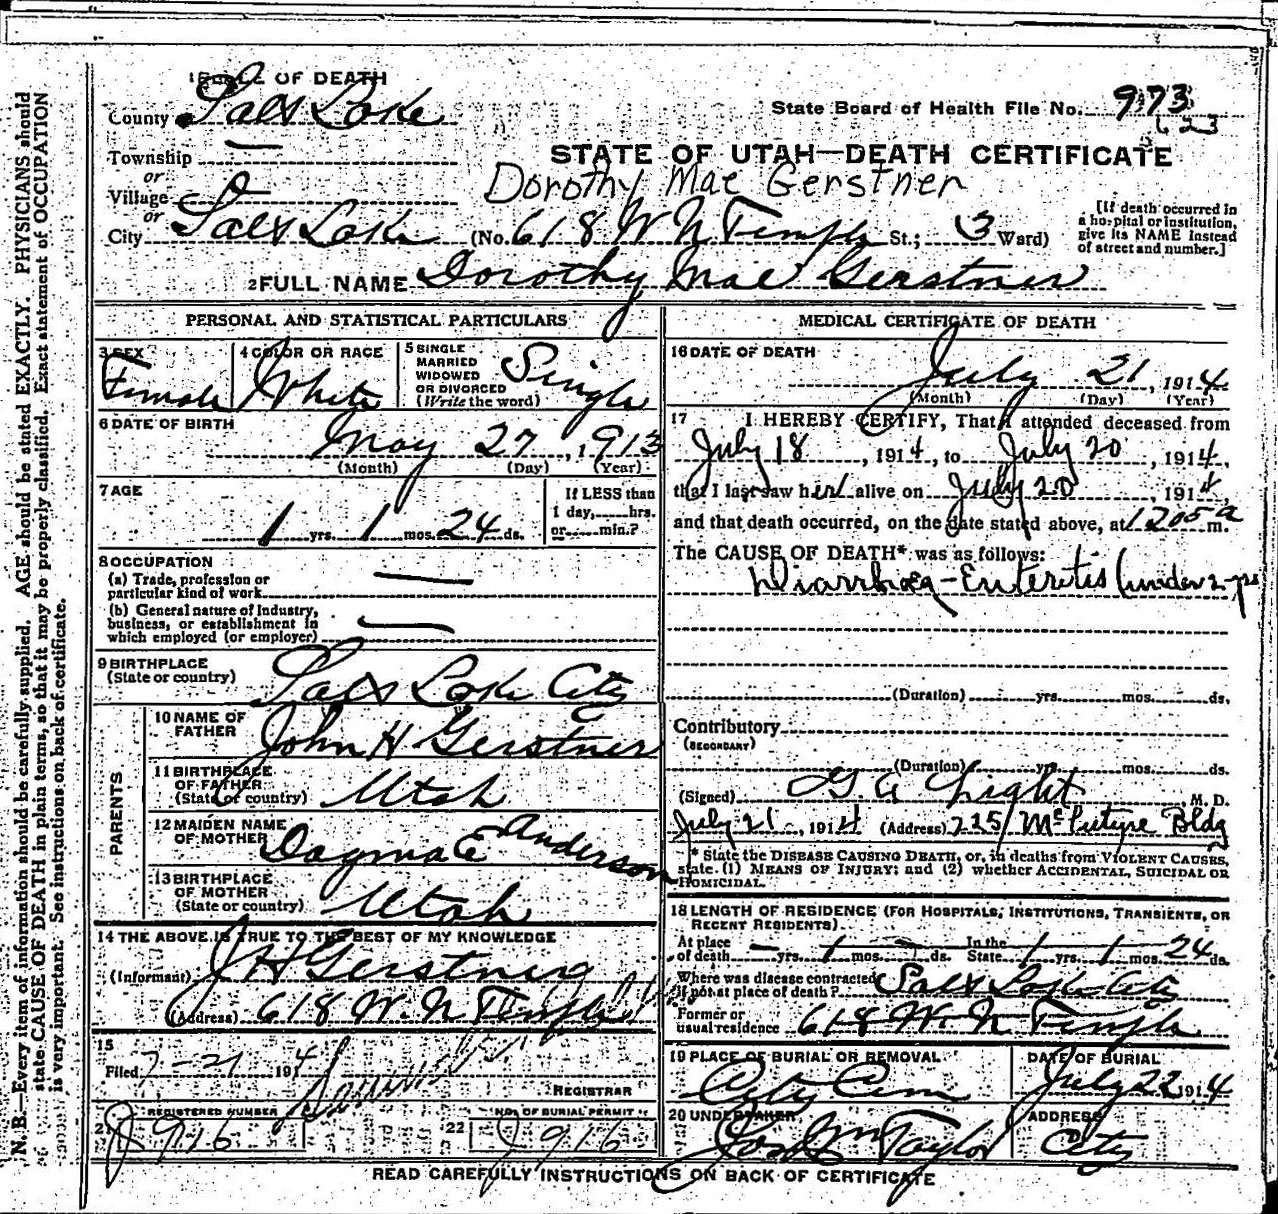 N. B.—Every item of information should be carefully supplied. AGE should be stated EXACTLY. PHYSICIANS should
state CAUSE OF DEATH in plain terms, so that it may be properly classified. Exact statement of OCCUPATION
is very important. See instructions on back of certificate.
1 PLACE OF DEATH
County Salt Lake
State Board of Health File No. 973
623
Township
or
STATE OF UTAH—DEATH CERTIFICATE
Dorothy Mae Gerstner
Village
or
City Salt Lake (No. 618 W N Temple St.; 3 Ward)
[If death occurred in
a hospital or institution,
give its NAME instead
of street and number.]
2 FULL NAME Dorothy Mae Gerstner
PERSONAL AND STATISTICAL PARTICULARS
3 SEX
Female
4 COLOR OR RACE
White
5 SINGLE
MARRIED
WIDOWED
OR DIVORCED
(Write the word)
Single
6 DATE OF BIRTH
May 27, 1913
(Month) (Day) (Year)
7 AGE
1 yrs. 1 mos. 24 ds.
If LESS than
1 day, hrs.
or min.?
8 OCCUPATION
(a) Trade, profession or
particular kind of work
(b) General nature of Industry,
business, or establishment in
which employed (or employer)
9 BIRTHPLACE
(State or country)
Salt Lake City
PARENTS
10 NAME OF
FATHER
John H Gerstner
11 BIRTHPLACE
OF FATHER
(State or country)
Utah
12 MAIDEN NAME
OF MOTHER
Dagma E Anderson
13 BIRTHPLACE
OF MOTHER
(State or country)
Utah
14 THE ABOVE IS TRUE TO THE BEST OF MY KNOWLEDGE
(Informant) J H Gerstner
(Address) 618 W. N Temple
15
Filed 7-21 1914
REGISTRAR
21 REGISTERED NUMBER
J 916
22 NO. OF BURIAL PERMIT
J 916
MEDICAL CERTIFICATE OF DEATH
16 DATE OF DEATH
July 21, 1914
(Month) (Day) (Year)
17 I HEREBY CERTIFY, That I attended deceased from
July 18, 1914, to July 20, 1914,
that I last saw her alive on July 20, 1914,
and that death occurred, on the date stated above, at 1205 a m.
The CAUSE OF DEATH* was as follows:
Diarrhoea-Enteritis (under 2-yrs
(Duration) yrs. mos. ds.
Contributory
(SECONDARY)
(Duration) yrs. mos. ds.
(Signed) G. A Light, M. D.
July 21, 1914 (Address) 225 McIntyre Bldg
* State the DISEASE CAUSING DEATH, or, in deaths from VIOLENT CAUSES,
state (1) MEANS OF INJURY; and (2) whether ACCIDENTAL, SUICIDAL OR
HOMICIDAL.
18 LENGTH OF RESIDENCE (FOR HOSPITALS, INSTITUTIONS, TRANSIENTS, OR
RECENT RESIDENTS).
At place
of death — yrs. 1 mos. — ds. In the
State 1 yrs. 1 mos. 24 ds.
Where was disease contracted
if not at place of death? Salt Lake City
Former or
usual residence 618 W. N Temple
19 PLACE OF BURIAL OR REMOVAL
City Cem
DATE OF BURIAL
July 22 1914
20 UNDERTAKER
Jos Wm Taylor
ADDRESS
City
READ CAREFULLY INSTRUCTIONS ON BACK OF CERTIFICATE